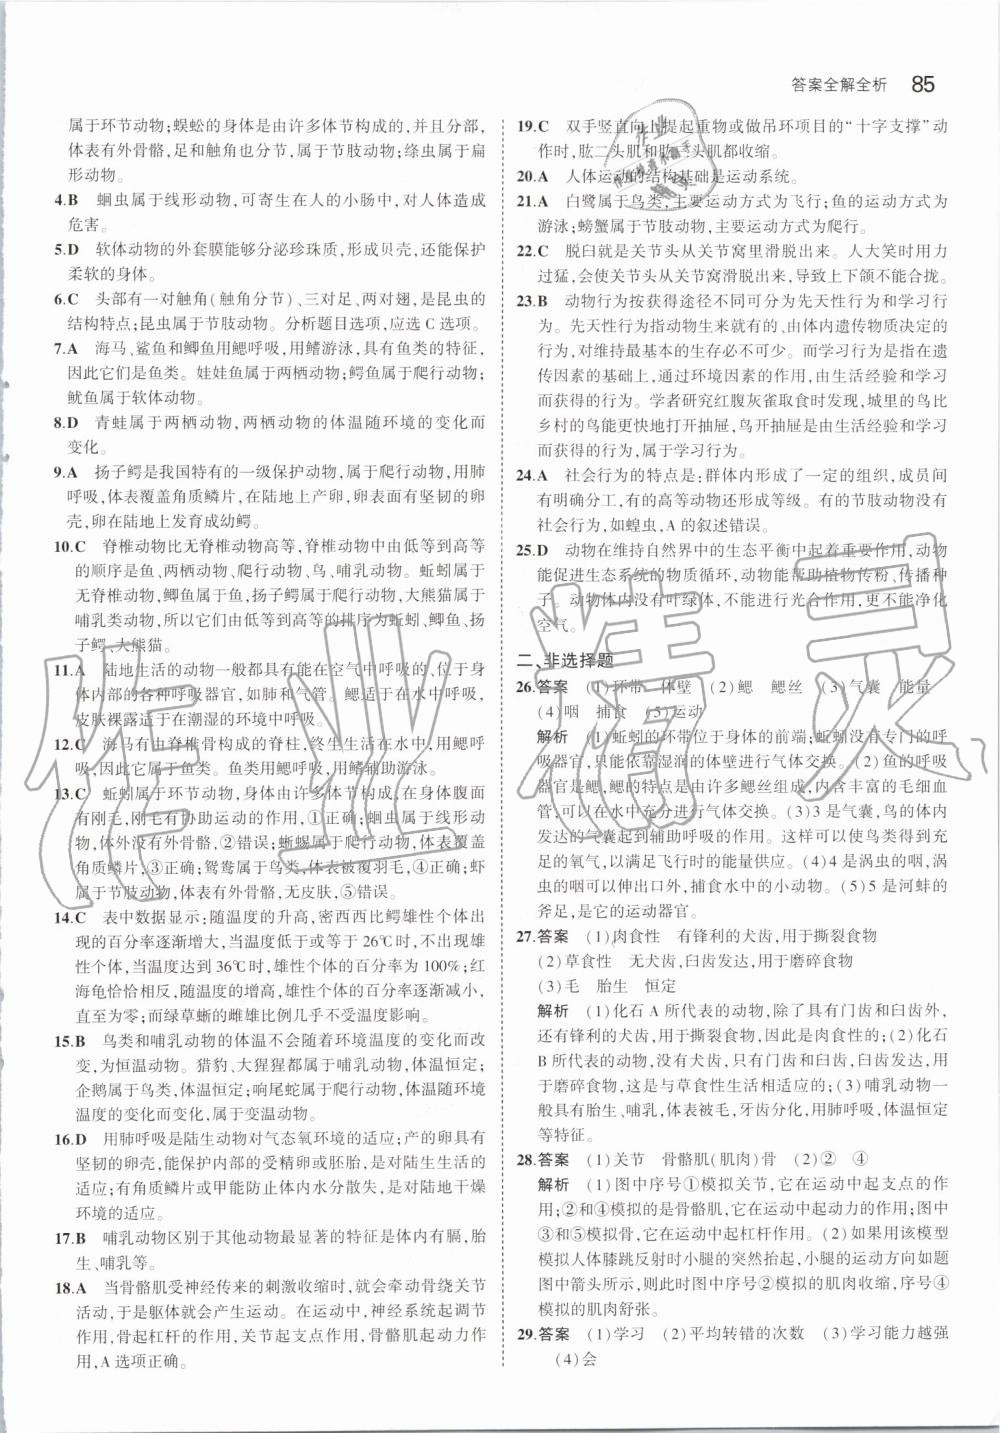 答案全解全析 85
属于环节动物;蜈蚣的身体是由许多体节构成的,并且分部,
体表有外骨骼,足和触角也分节,属于节肢动物;绦虫属于扁
形动物。
4.B 蛔虫属于线形动物,可寄生在人的小肠中,对人体造成
危害。
5.D 软体动物的外套膜能够分泌珍珠质,形成贝壳,还能保护
柔软的身体。
6.C 头部有一对触角(触角分节)、三对足、两对翅,是昆虫的
结构特点;昆虫属于节肢动物。分析题目选项,应选C选项。
7.A 海马、鲨鱼和鲫鱼用鳃呼吸,用鳍游泳,具有鱼类的特征,
因此它们是鱼类。娃娃鱼属于两栖动物;鳄鱼属于爬行动物;
鱿鱼属于软体动物。
8.D 青蛙属于两栖动物,两栖动物的体温随环境的变化而
变化。
9.A 扬子鳄是我国特有的一级保护动物,属于爬行动物,用肺
呼吸,体表覆盖角质鳞片,在陆地上产卵,卵表面有坚韧的卵
壳,卵在陆地上发育成幼鳄。
10.C 脊椎动物比无脊椎动物高等,脊椎动物中由低等到高等
的顺序是鱼、两栖动物、爬行动物、鸟、哺乳动物。蚯蚓属于
无脊椎动物,鲫鱼属于鱼,扬子鳄属于爬行动物,大熊猫属于
哺乳类动物,所以它们由低等到高等的排序为蚯蚓、鲫鱼、扬
子鳄、大熊猫。
11.A 陆地生活的动物一般都具有能在空气中呼吸的,位于身
体内部的各种呼吸器官,比如肺和气管。鳃适于水中呼吸,
皮肤裸露适于在潮湿的环境中呼吸。
12.C 海马有由脊椎骨构成的脊柱,终生生活在水中,用鳃呼
吸,因此它属于鱼类。鱼类用鳃呼吸,用鳍辅助游泳。
13.C 蚯蚓属于环节动物,身体由许多体节构成,在身体腹面
有刚毛,刚毛有协助运动的作用,①正确;蛔虫属于线形动
物,体外没有外骨骼,②错误;蜥蜴属于爬行动物,体表覆盖
角质鳞片,③正确;鸳鸯属于鸟类,体表被覆羽毛,④正确;虾
属于节肢动物,体表有外骨骼,无皮肤,⑤错误。
14.C 表中数据显示:随温度的升高,密西西比鳄雄性个体出
现的百分率逐渐增大,当温度低于或等于26℃时,不出现雄
性个体,当温度达到36℃时,雄性个体的百分率为100%;红
海龟恰恰相反,随温度的增高,雄性个体的百分率逐渐减小,
直至为零;而绿草蜥的雌雄比例几乎不受温度影响。
15.B 鸟类和哺乳动物的体温不会随着环境温度的变化而改
变,为恒温动物。猎豹、大猩猩都属于哺乳动物,体温恒定;
企鹅属于鸟类,体温恒定;响尾蛇属于爬行动物,体温随环境
温度的变化而变化,属于变温动物。
16.D 用肺呼吸是陆生动物对气态氧环境的适应;产的卵具有
坚韧的卵壳,能保护内部的受精卵或胚胎,是对陆生生活的
适应;有角质鳞片或甲能防止体内水分散失,是对陆地干燥
环境的适应。
17.B 哺乳动物区别于其他动物最显著的特征是体内有膈,胎
生、哺乳等。
18.A 当骨骼肌受神经传来的刺激收缩时,就会牵动骨绕关节
活动,于是躯体就会产生运动。在运动中,神经系统起调节
作用,骨起杠杆的作用,关节起支点作用,骨骼肌起动力作
用,A选项正确。
19.C 双手竖直向上提起重物或做吊环项目的“十字支撑”动
作时,肱二头肌和肱三头肌都收缩。
20.A 人体运动的结构基础是运动系统。
21.A 白鹭属于鸟类,主要运动方式为飞行;鱼的运动方式为
游泳;螃蟹属于节肢动物,主要运动方式为爬行。
22.C 脱臼就是关节头从关节窝里滑脱出来。人大笑时用力
过猛,会使关节头从关节窝滑脱出来,导致上下颌不能合拢。
23.B 动物行为按获得途径不同可分为先天性行为和学习行
为。先天性行为指动物生来就有的、由体内遗传物质决定的
行为,对维持最基本的生存必不可少。而学习行为是在遗
传因素的基础上,通过环境因素的作用,由生活经验和学习
而获得的行为。学者研究红腹灰雀取食时发现,城里的鸟比
乡村的鸟能更快地打开抽屉,鸟开抽屉是由生活经验和学习
而获得的行为,属于学习行为。
24.A 社会行为的特点是:群体内形成了一定的组织,成员间
有明确分工,有的高等动物还形成等级。有的节肢动物没有
社会行为,如蝗虫,A的叙述错误。
25.D 动物在维持自然界中的生态平衡中起着重要作用,动物
能促进生态系统的物质循环,动物能帮助植物传粉、传播种
子。动物体内没有叶绿体,不能进行光合作用,更不能净化
空气。
二、非选择题
26.答案 (1)环带 体壁 (2)鳃 鳃丝 (3)气囊 能量
(4)咽 捕食 (5)运动
解析 (1)蚯蚓的环带位于身体的前端;蚯蚓没有专门的呼
吸器官,只能依靠湿润的体壁进行气体交换。(2)鱼的呼吸
器官是鳃,鳃的特点是由许多鳃丝组成,内含丰富的毛细血
管,可以在水中充分进行气体交换。(3)3是气囊,鸟的体内
发达的气囊起到辅助呼吸的作用。这样可以使鸟类得到充
足的氧气,以满足飞行时的能量供应。(4)4是涡虫的咽,涡
虫的咽可以伸出口外,捕食水中的小动物。(5)5是河蚌的
斧足,是它的运动器官。
27.答案 (1)肉食性 有锋利的犬齿,用于撕裂食物
(2)草食性 无犬齿,臼齿发达,用于磨碎食物
(3)毛 胎生 恒定
解析 (1)化石A所代表的动物,除了具有门齿和臼齿外,
还有锋利的犬齿,用于撕裂食物,因此是肉食性的;(2)化石
B所代表的动物,没有犬齿,只有门齿和臼齿,臼齿发达,用
于磨碎食物,这是与草食性生活相适应的;(3)哺乳动物一
般具有胎生、哺乳,体表被毛,牙齿分化,用肺呼吸,体温恒定
等特征。
28.答案 (1)关节 骨骼肌(肌肉)骨 (2)② ④
解析 (1)图中序号①模拟关节,它在运动中起支点的作
用,②和④模拟的是骨骼肌,它在运动中起动力作用;图中
③和⑤模拟骨,它在运动中起杠杆作用。(2)如果用该模型
模拟人体膝跳反射时小腿的突然抬起,小腿的运动方向如题
图中箭头所示,则此时图中序号②模拟的肌肉收缩,序号④
模拟的肌肉舒张。
29.答案 (1)学习 (2)平均转错的次数 (3)学习能力越强
(4)会
作业精灵